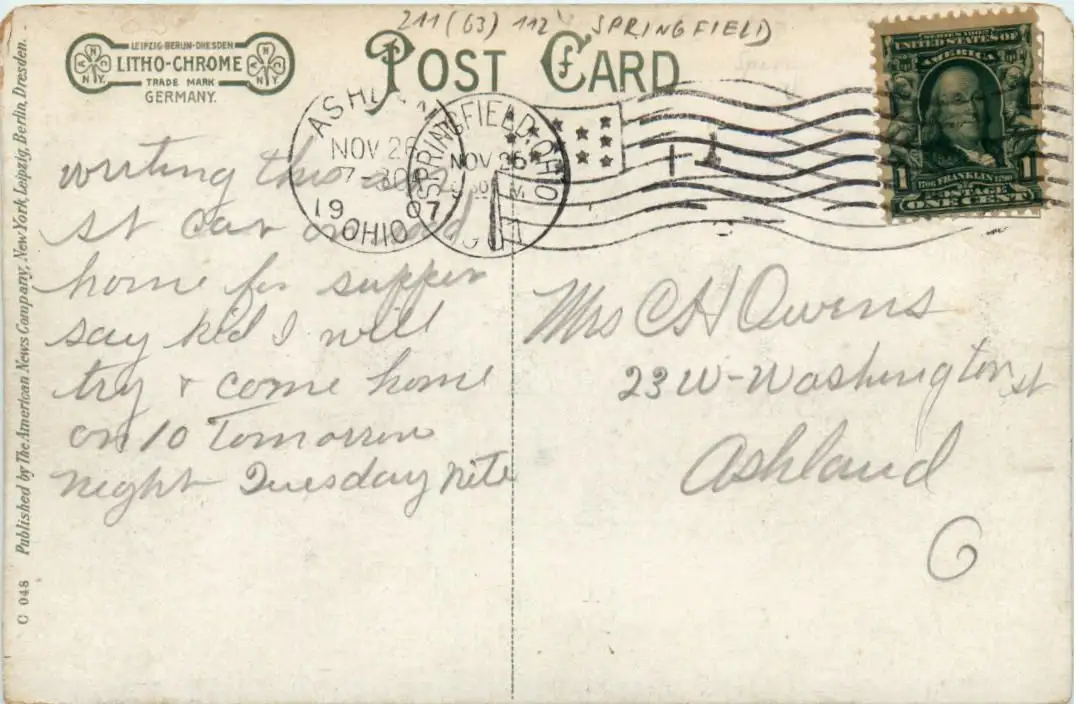 211 (63) 112 SPRINGFIELD
LEIPZIG-BERLIN-DRESDEN
LITHO-CHROME
TRADE MARK
GERMANY.
N N N.Y.
N N N.Y.
POST CARD
SERIES 1902
UNITED STATES OF
AMERICA
1 1706 FRANKLIN 1790 1
POSTAGE
ONE CENT
ASHLAN
NOV 26
7-30
1907
OHIO
SPRINGFIELD, OHIO
NOV 25
1
writing this
st car
home for supper
say kid I will
try & come home
on 10 Tomorrow
night Tuesday nite
Mrs C H Owens
23 W-Washington st
Ashland
O
C 048 Published by The American News Company, New York, Leipzig, Berlin, Dresden.